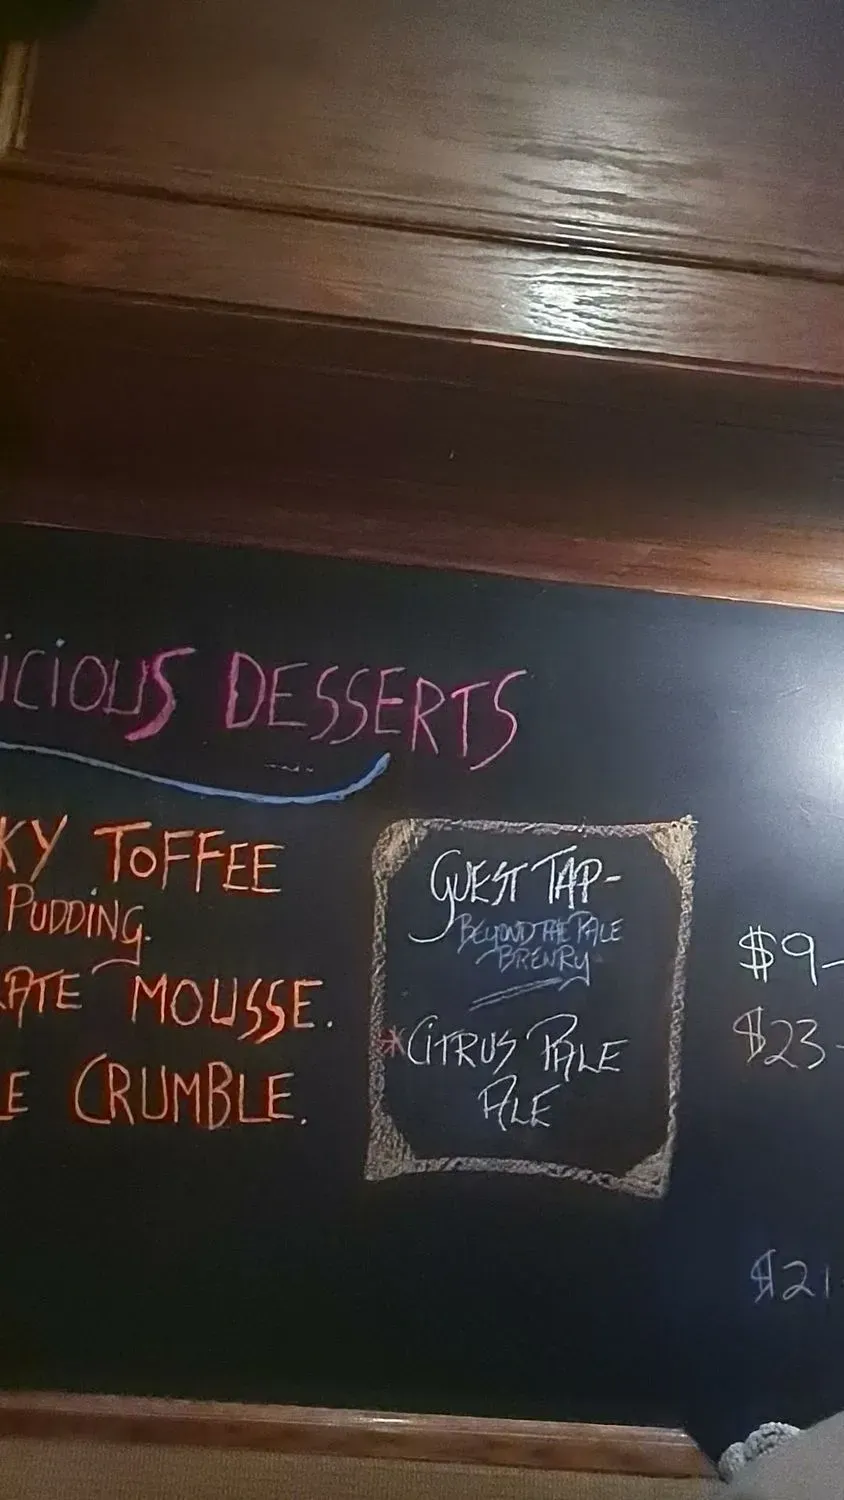 icious DESSERTS
KY TOFFEE
PUDDING.
ATE MOUSSE.
LE CRUMBLE.
GUEST TAP-
BEYOND THE PALE
BREWRY
*CITRUS PALE
ALE
$9-
$23-
$21-